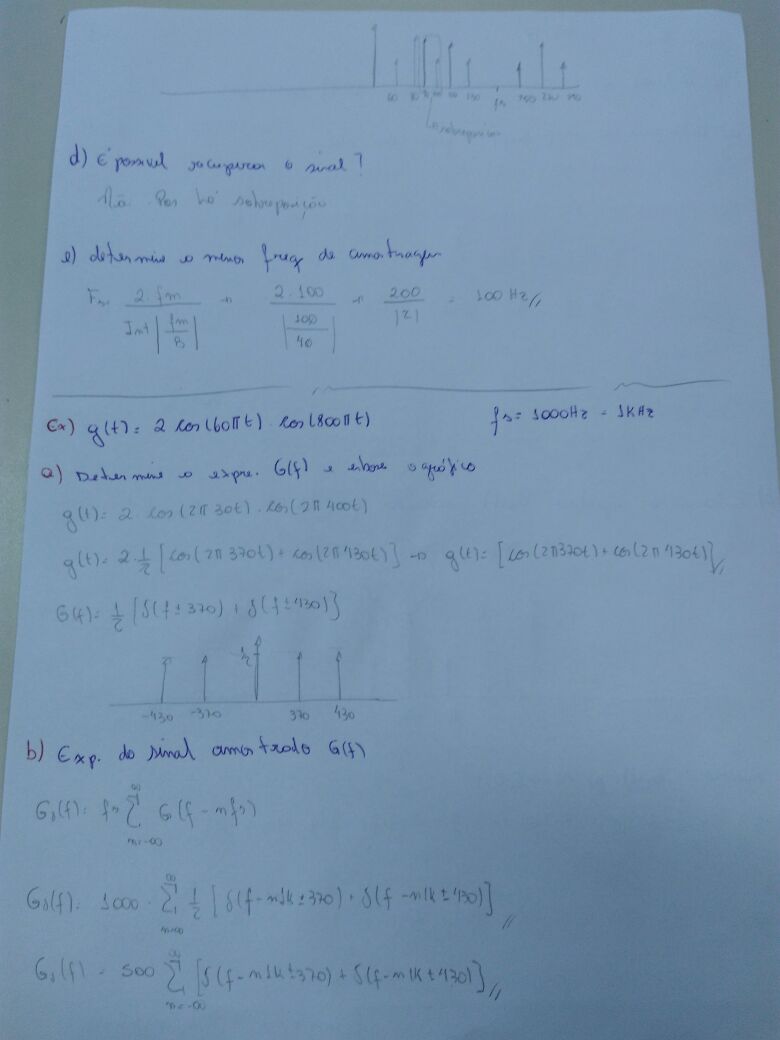 60 80 fs 210 250
sobreposição
d) É possível recuperar o sinal?
Não Pos há sobreposição
e) determine o menor freq de amostragem
Fs = 2.fm / Int|fm/B| → 2.100 / |100/40| → 200 / |2| = 100 Hz //
Ex) g(t) = 2 cos(60πt) . cos(800πt) fs = 1000Hz = 1KHz
a) Determine o expre. G(f) e esboce o gráfico
g(t) = 2 . cos(2π 30t) . cos(2π 400t)
g(t) = 2.1/2 [cos(2π 370t) + cos(2π 430t)] → g(t) = [cos(2π370t) + cos(2π 430t)] //
G(f) = 1/2 [δ(f ± 370) + δ(f ± 430)]
1/2
-430 -370 370 430
b) Exp. do sinal amostrado G(f)
Gδ(f) = fs ∑ n=-∞ ∞ G(f - nfs)
Gδ(f) = 1000 . ∑ n=∞ ∞ 1/2 [δ(f - n1k ± 370) + δ(f - n1k ± 430)] //
Gδ(f) = 500 ∑ n=-∞ ∞ [δ(f - n1k ± 370) + δ(f - n1k ± 430)] //